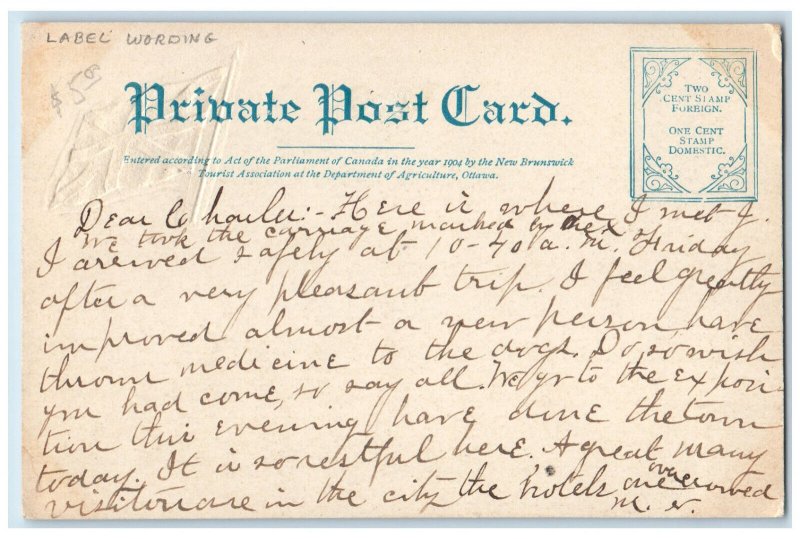 LABEL WORDING
$5.00
Private Post Card.
Entered according to Act of the Parliament of Canada in the year 1904 by the New Brunswick
Tourist Association at the Department of Agriculture, Ottawa.
TWO
CENT STAMP
FOREIGN.
ONE CENT
STAMP
DOMESTIC.
Dear Charlie:- Here is where I met J.
We took the carriage marked by the X
I arrived safely at 10-40 a.m. Friday
after a very pleasant trip. I feel greatly
improved almost a new person, have
thrown medicine to the dogs. Do so wish
you had come, so say all. We go to the exposi-
tion this evening have done the town
today. It is so restful here. A great many
visitors are in the city the hotels are overcrowed
M. N.